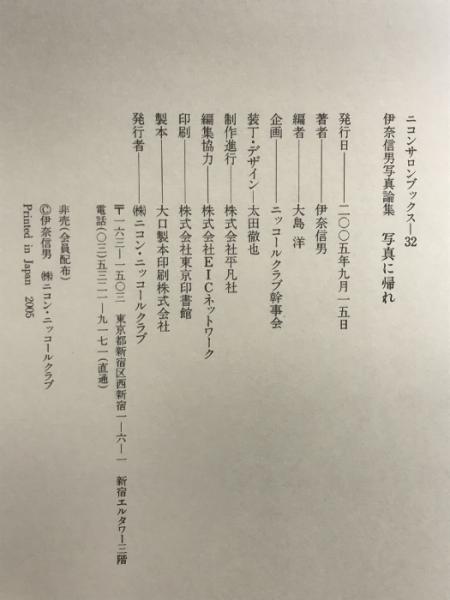 ニコンサロンブックス―32
伊奈信男写真論集　写真に帰れ
発行日―――二〇〇五年九月一五日
著者――――伊奈信男
編者――――大島　洋
企画――――ニッコールクラブ幹事会
装丁・デザイン―太田徹也
制作進行―――株式会社平凡社
編集協力―――株式会社EICネットワーク
印刷――――株式会社東京印書館
製本――――大口製本印刷株式会社
発行者―――㈱ニコン・ニッコールクラブ
〒一六三―一五〇三　東京都新宿区西新宿一―六―一　新宿エルタワー二階
電話(〇三)五三二一―九一七一(直通)
非売(会員配布)
©伊奈信男　㈱ニコン・ニッコールクラブ
Printed in Japan　2005